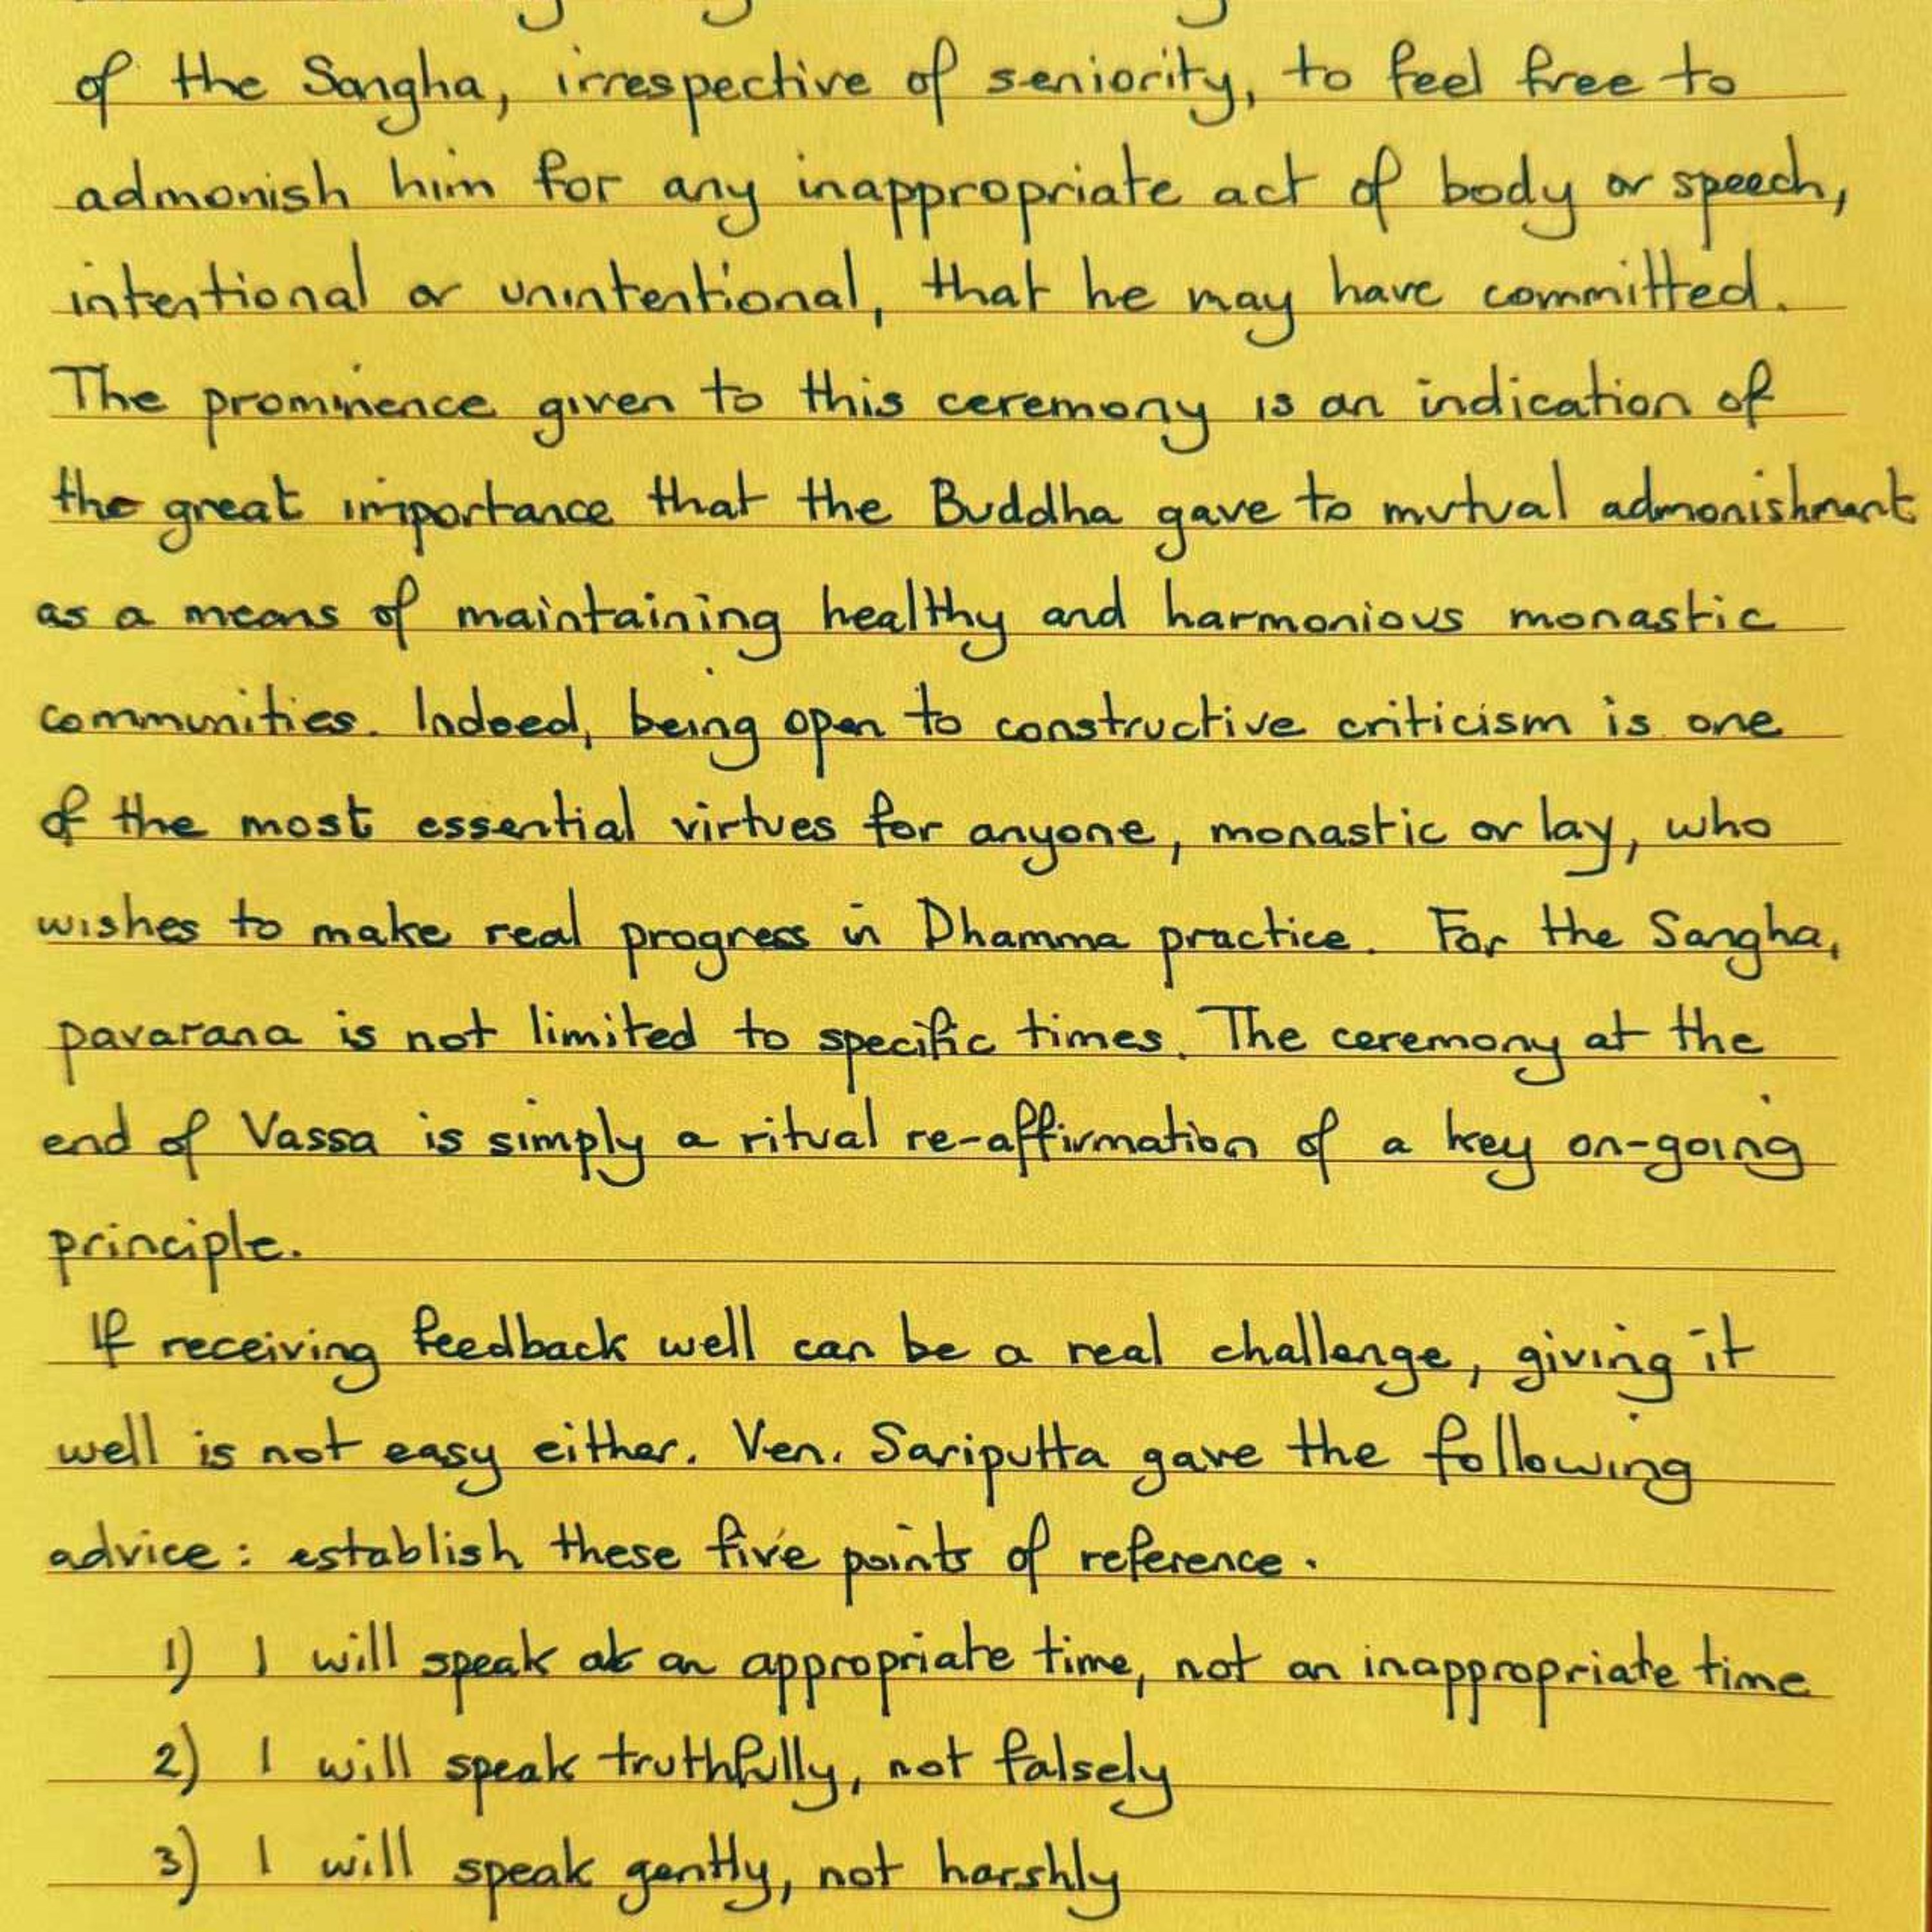 of the Sangha, irrespective of seniority, to feel free to
admonish him for any inappropriate act of body or speech,
intentional or unintentional, that he may have committed.
The prominence given to this ceremony is an indication of
the great importance that the Buddha gave to mutual admonishment
as a means of maintaining healthy and harmonious monastic
communities. Indeed, being open to constructive criticism is one
of the most essential virtues for anyone, monastic or lay, who
wishes to make real progress in Dhamma practice. For the Sangha,
pavarana is not limited to specific times. The ceremony at the
end of Vassa is simply a ritual re-affirmation of a key on-going
principle.
If receiving feedback well can be a real challenge, giving it
well is not easy either. Ven. Sariputta gave the following
advice: establish these five points of reference.
1) I will speak at an appropriate time, not an inappropriate time
2) I will speak truthfully, not falsely
3) I will speak gently, not harshly